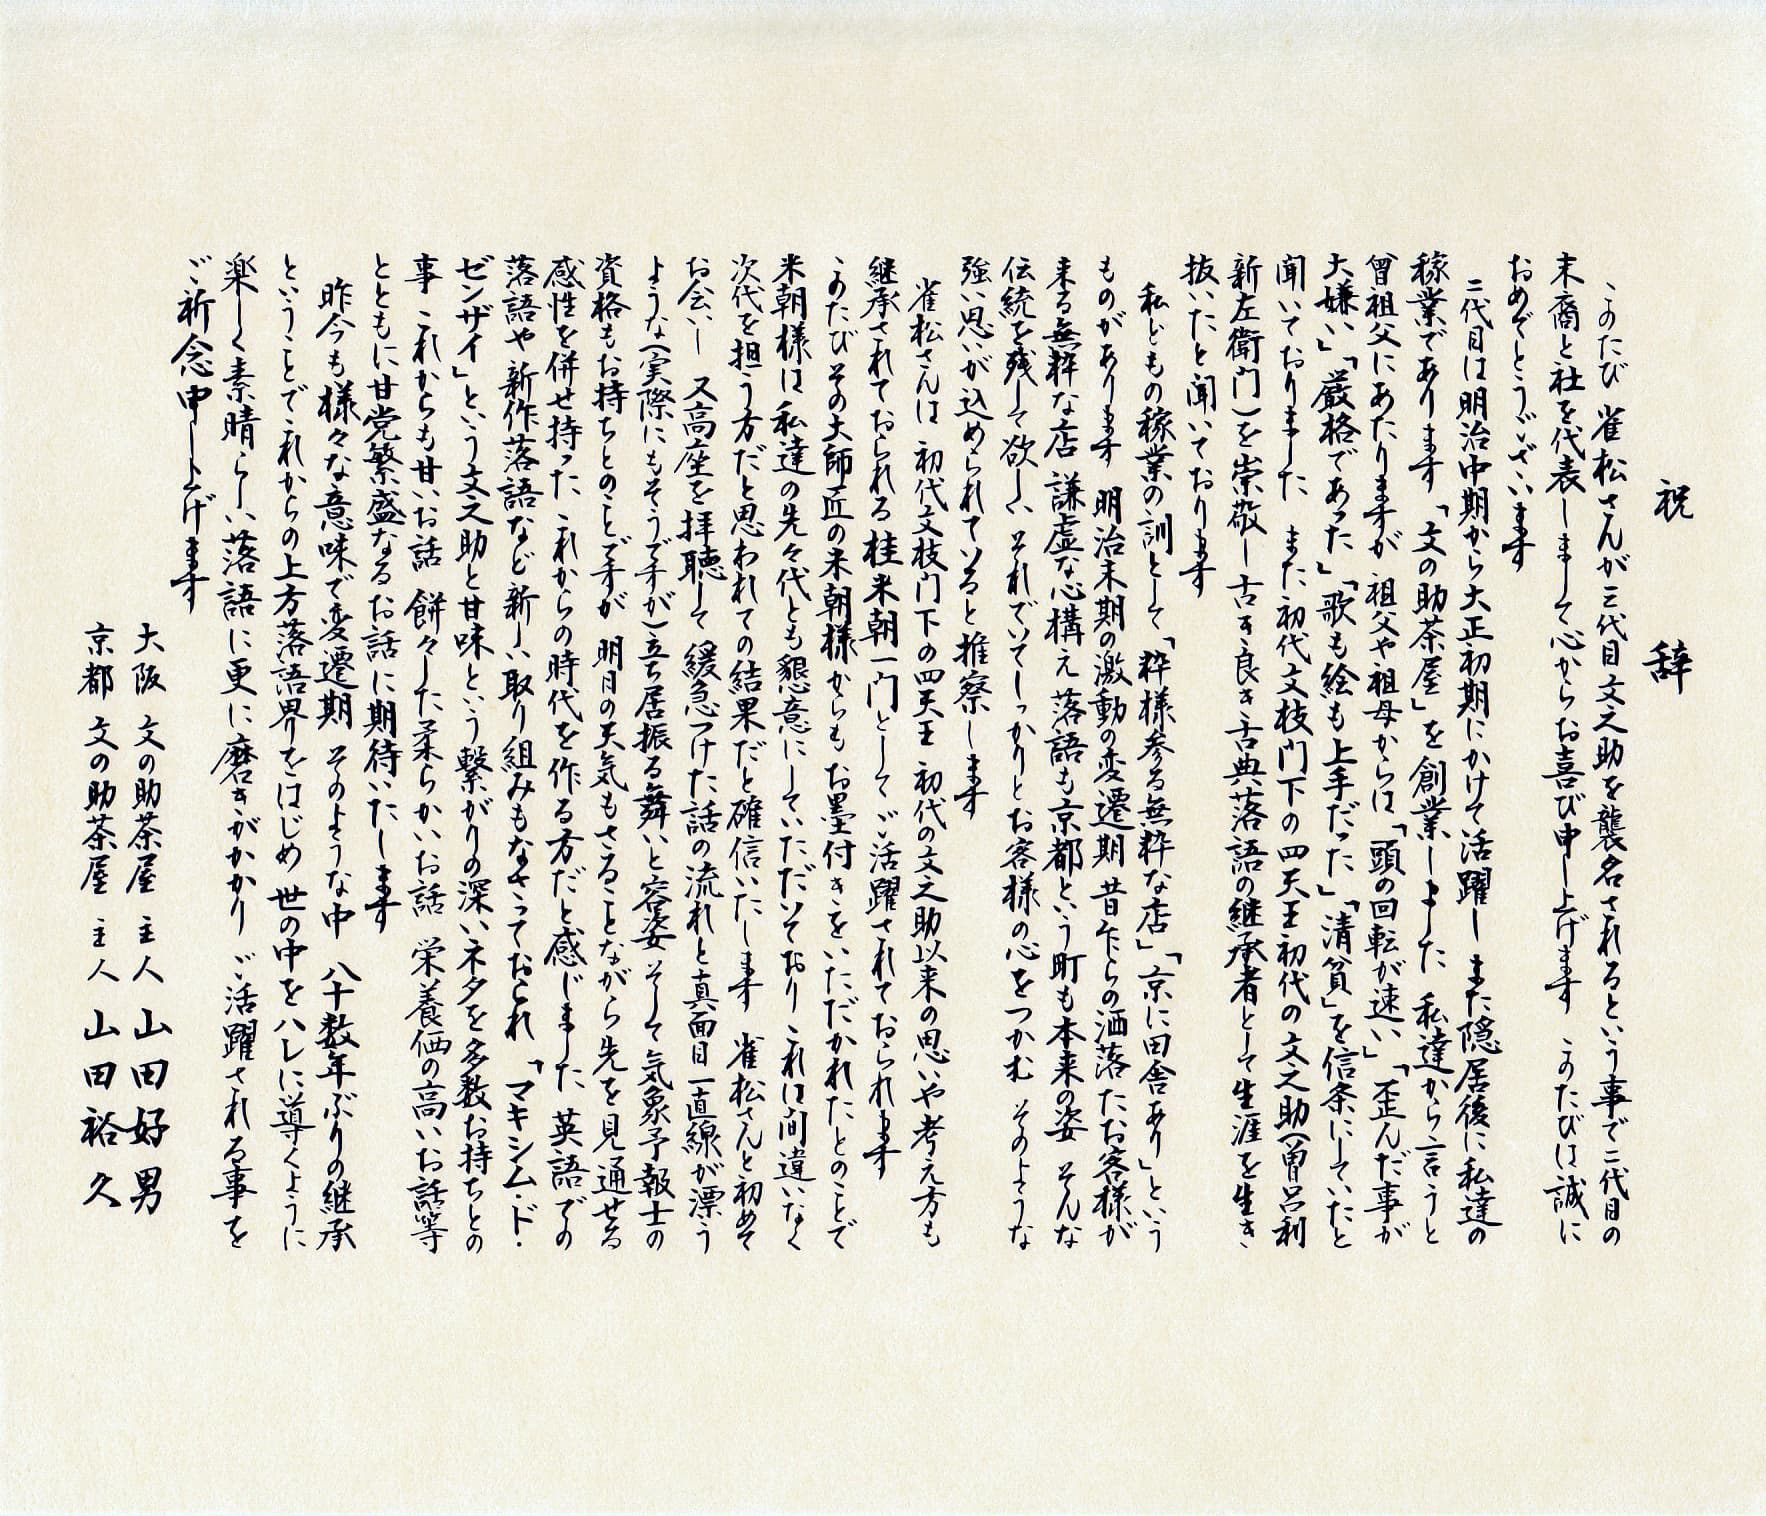 祝 辞
このたび 雀松さんが三代目文之助を襲名されるという事で二代目の
末裔と社を代表しまして心からお喜び申し上げます このたびは誠に
おめでとうございます
二代目は明治中期から大正初期にかけて活躍し また隠居後に私達の
稼業であります「文の助茶屋」を創業しました 私達から言うと
曾祖父にあたりますが 祖父や祖母からは「頭の回転が速い」「歪んだ事が
大嫌い」「厳格であった」「歌も絵も上手だった」「清貧」を信条にしていたと
聞いておりました また初代文枝門下の四天王初代の文之助(曽呂利
新左衛門)を崇敬し古き良き古典落語の継承者として生涯を生き
抜いたと聞いております
私どもの稼業の訓として「粋様参る無粋な店」「京に田舎あり」という
ものがあります 明治末期の激動の変遷期 昔乍らの洒落たお客様が
来る無粋な店 謙虚な心構え 落語も京都という町も本来の姿 そんな
伝統を残して欲しい それでいてしっかりとお客様の心をつかむ そのような
強い思いが込められていると推察します
雀松さんは 初代文枝門下の四天王 初代の文之助以来の思いや考え方も
継承されておられる桂米朝一門として ご活躍されておられます
このたびその大師匠の米朝様からもお墨付きをいただかれたとのことで
米朝様は私達の先々代とも懇意にしていただいており これは間違いなく
次代を担う方だと思われての結果だと確信いたします 雀松さんと初めて
お会いし 又高座を拝聴して 緩急つけた話の流れと真面目一直線が漂う
ような(実際にもそうですが)立ち居振る舞いと容姿 そして気象予報士の
資格もお持ちとのことですが 明日の天気もさることながら先を見通せる
感性を併せ持った これからの時代を作る方だと感じました 英語での
落語や新作落語など新しい取り組みもなさっておられ 「マキシム・ド・
ゼンザイ」という文之助と甘味という繋がりの深いネタを多数お持ちとの
事 これからも甘いお話 餅々した柔らかいお話 栄養価の高いお話等
とともに甘党繁盛なるお話に期待いたします
昨今も様々な意味で変遷期 そのような中 八十数年ぶりの継承
ということでこれからの上方落語界をはじめ 世の中をハレに導くように
楽しく素晴らしい落語に更に磨きがかかり ご活躍される事を
ご祈念申し上げます
大阪 文の助茶屋 主人 山田好男
京都 文の助茶屋 主人 山田裕久